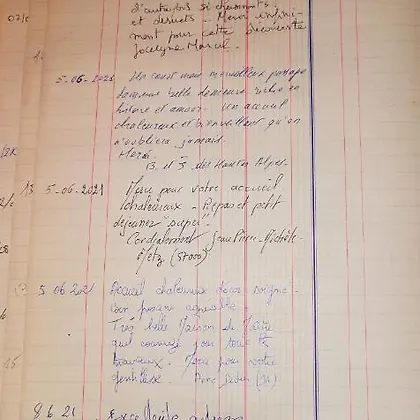 d'autrefois si charmants
et désuets - Merci infini-
ment pour cette découverte
Jocelyne Marcel.
5-06-2021 Un court mais merveilleux passage
dans une belle demeure riche en
histoire et amour. Un accueil
chaleureux et bienveillant qu'on
n'oubliera jamais.
Merci.
B. et J. des Hautes Alpes
13 5-06-2021 Merci pour votre accueil
chaleureux - Repas et petit
déjeuner "super".
Cordialement Jean Pierre - Michèle
Metz (57000)
5 06 2021 Accueil chaleureux décor soigné -
Très belle Maison de Maître
quel courage pour tous les
travaux. Merci pour votre
gentillesse.
15
8.6.21 Excellente